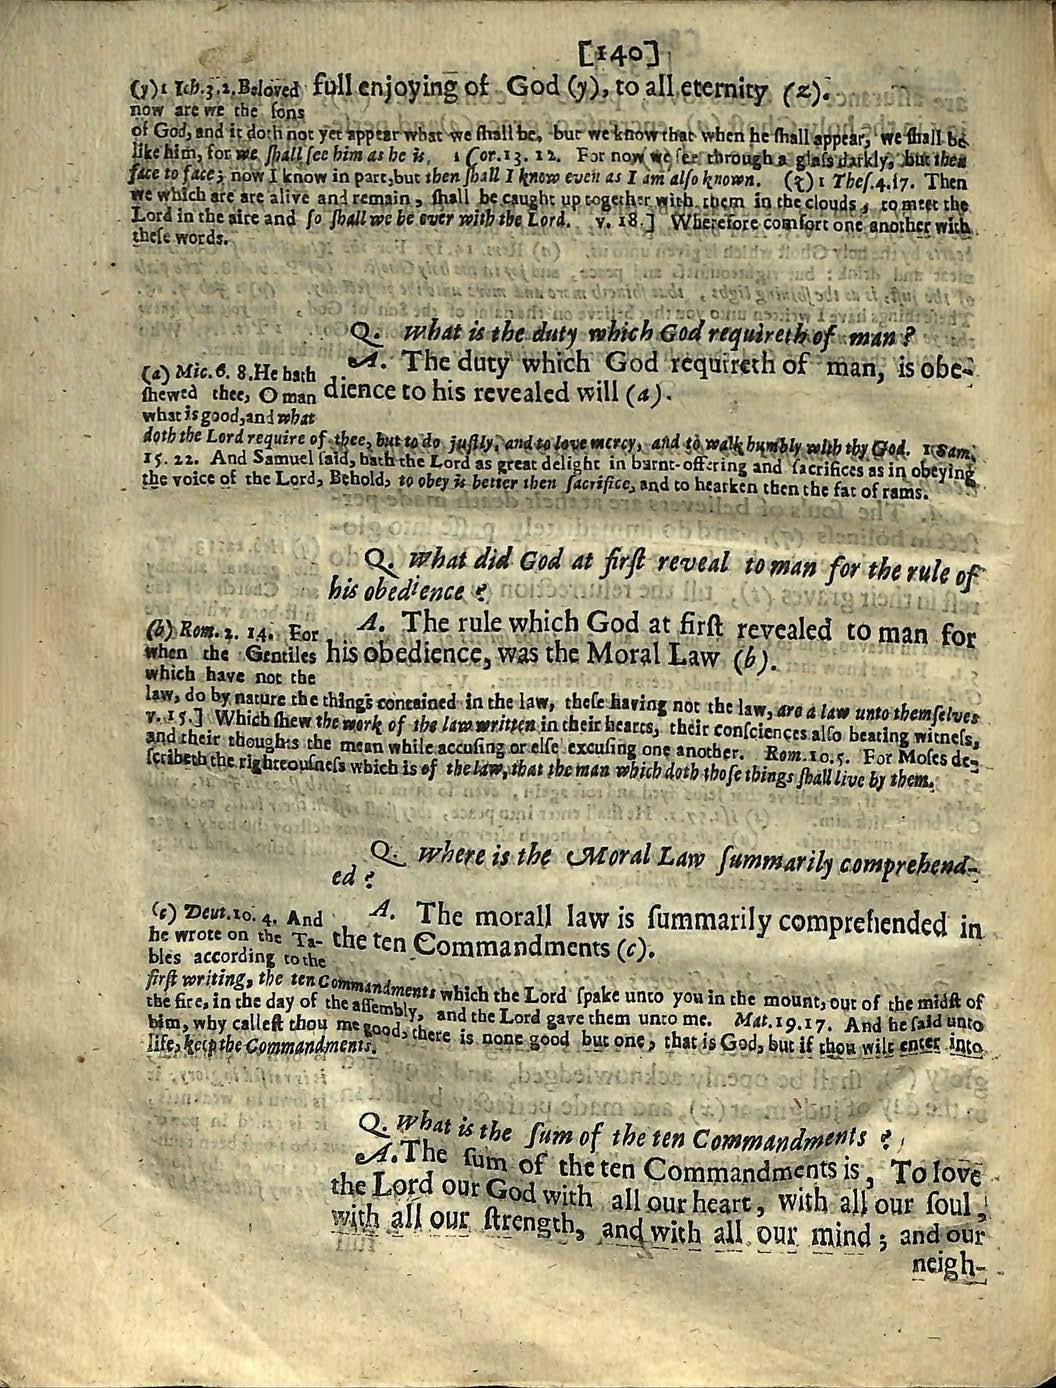 [140]
full enjoying of God (y), to all eternity (z).
(y) 1 Ioh. 3. 2. Beloved
now are we the sons
of God, and it doth not yet appear what we ſhall be, but we know that when he ſhall appear, we ſhall be
like him, for we ſhall ſee him as he is. 1 Cor. 13. 12. For now we ſee through a glaſs darkly, but then
face to face; now I know in part, but then ſhall I know even as I am alſo known. (z) 1 Theſ. 4. 17. Then
we which are are alive and remain, ſhall be caught up together with them in the clouds, to meet the
Lord in the aire and ſo ſhall we be ever with the Lord. v. 18.] Wherefore comfort one another with
theſe words.
Q. What is the duty which God requireth of man?
A. The duty which God requireth of man, is obe-
dience to his revealed will (a).
(a) Mic. 6. 8. He hath
ſhewed thee, O man
what is good, and what
doth the Lord require of thee, but to do juſtly, and to love mercy, and to walk humbly with thy God. 1 Sam.
15. 22. And Samuel ſaid, hath the Lord as great delight in burnt-offering and ſacrifices as in obeying
the voice of the Lord, Behold, to obey is better then ſacrifice, and to hearken then the fat of rams.
Q. What did God at firſt reveal to man for the rule of
his obedience?
A. The rule which God at firſt revealed to man for
his obedience, was the Moral Law (b).
(b) Rom. 2. 14. For
when the Gentiles
which have not the
law, do by nature the things contained in the law, theſe having not the law, are a law unto themſelves
v. 15.] Which ſhew the work of the law written in their hearts, their conſciences alſo bearing witneſs,
and their thoughts the mean while accuſing or elſe excuſing one another. Rom. 10. 5. For Moſes de-
ſcribeth the righteouſneſs which is of the law, that the man which doth thoſe things ſhall live by them.
Q. Where is the Moral Law ſummarily comprehend-
ed?
A. The morall law is ſummarily comprehended in
the ten Commandments (c).
(c) Deut. 10. 4. And
he wrote on the Ta-
bles according to the
firſt writing, the ten Commandments which the Lord ſpake unto you in the mount, out of the midſt of
the fire, in the day of the aſſembly, and the Lord gave them unto me. Mat. 19. 17. And he ſaid unto
him, why calleſt thou me good, there is none good but one, that is God, but if thou wilt enter into
life, keep the Commandments.
Q. What is the ſum of the ten Commandments?
A. The ſum of the ten Commandments is, To love
the Lord our God with all our heart, with all our ſoul,
with all our ſtrength, and with all our mind; and our
neigh-